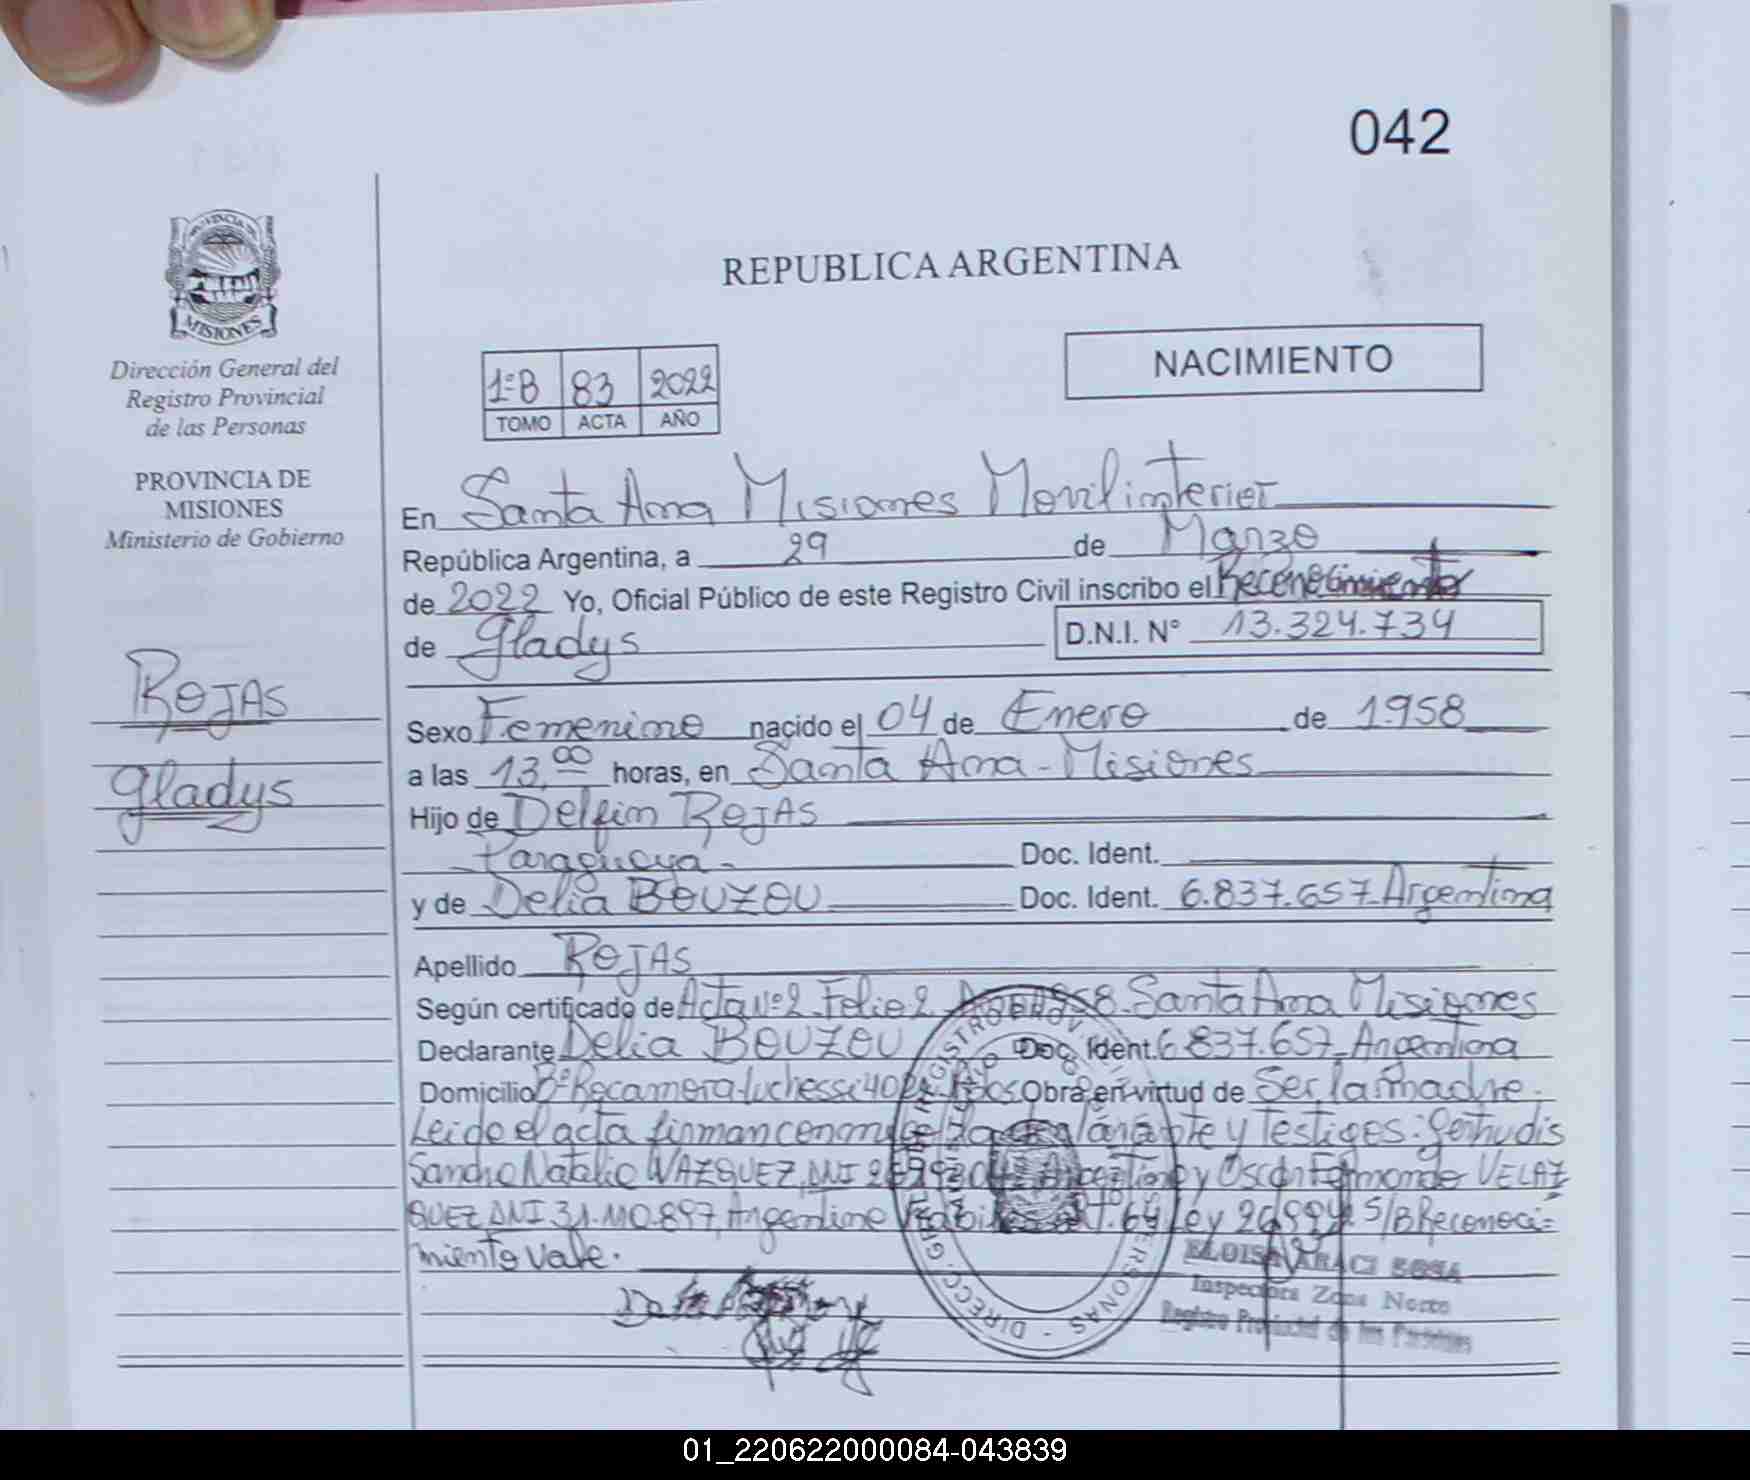 042
PROVINCIA DE
MISIONES
Dirección General del
Registro Provincial
de las Personas
PROVINCIA DE
MISIONES
Ministerio de Gobierno
ROJAS
Gladys
REPUBLICA ARGENTINA
1ºB 83 2022
TOMO ACTA AÑO
NACIMIENTO
En Santa Ana Misiones Movil interior
República Argentina, a 29 de Marzo
de 2022 Yo, Oficial Público de este Registro Civil inscribo el Reconocimiento
de Gladys D.N.I. N° 13.324.734
Sexo Femenino nacido el 04 de Enero de 1958
a las 13,00 horas, en Santa Ana - Misiones
Hijo de Delfin ROJAS
Paraguaya - Doc. Ident.
y de Delia BOUZOU Doc. Ident. 6.837.657 Argentina
Apellido ROJAS
Según certificado de Acta Nº2 Folio 2 Año 1958 Santa Ana Misiones
Declarante Delia BOUZOU Doc. Ident. 6837.657 Argentina
Domicilio Bº Rocamora Obra en virtud de Ser la madre.
Leido el acta firman conmigo la declarante y Testigos: Gertrudis
Sandra Natalia VAZQUEZ, DNI Argentina y Oscar Fernando VELAZ
QUEZ DNI 31.110.897, Argentino Art. 64 Ley 26.994. S/B Reconoci=
miento vale.
ELOISA ARACI SOSA
Inspectora Zona Norte
Registro Provincial de las Personas
01_220622000084-043839